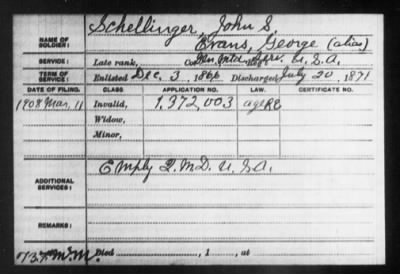 NAME OF SOLDIER: Schellinger, John S.
Evans, George (alias)
SERVICE: Late rank, Co. Serv. U.S.A.
TERM OF SERVICE: Enlisted Dec. 3, 1866 Discharged July 20, 1871
DATE OF FILING. CLASS. APPLICATION NO. LAW. CERTIFICATE NO.
1908 Mar. 11 Invalid, 1,372,003
Widow,
Minor,
ADDITIONAL SERVICES: Emply Q.M.D. U.S.A.
REMARKS:
Died , 1 , at